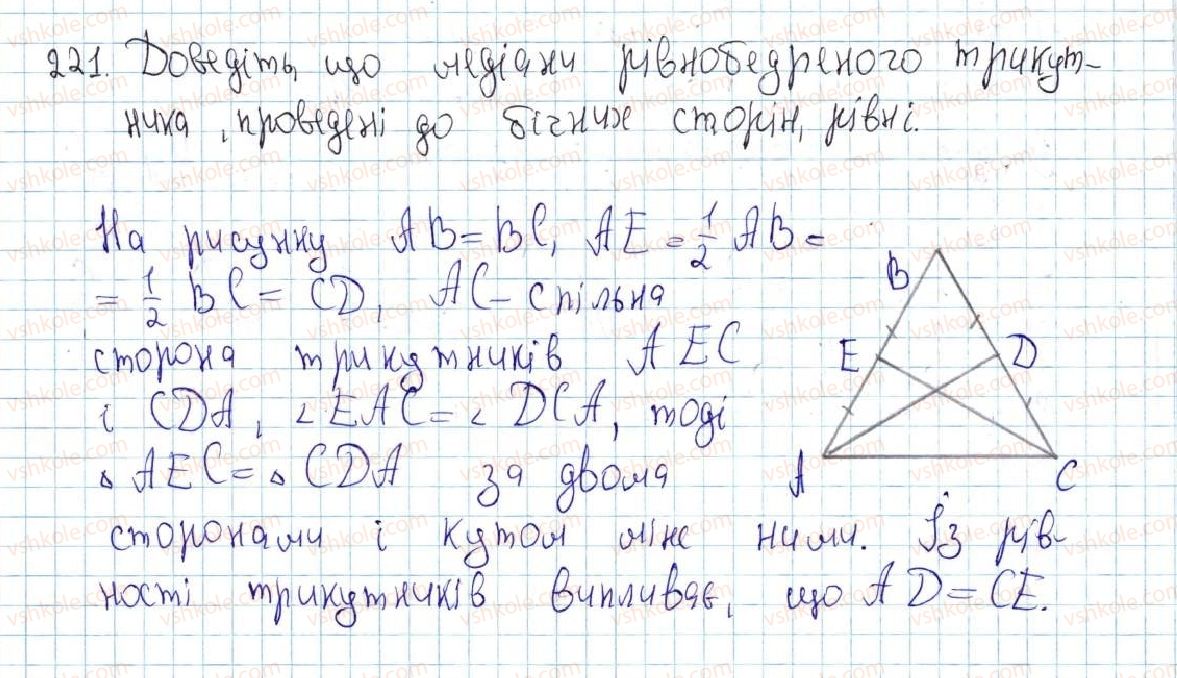 221. Доведіть, що медіани рівнобедреного трикут-
ника, проведені до бічних сторін, рівні.
На рисунку AB = BC, AE = 1/2 AB =
= 1/2 BC = CD, AC - спільна
сторона трикутників AEC
і CDA, ∠EAC = ∠DCA, тоді
△AEC = △CDA за двома
сторонами і кутом між ними. Із рів-
ності трикутників випливає, що AD = CE.
B
E
D
A
C
vshkole.com